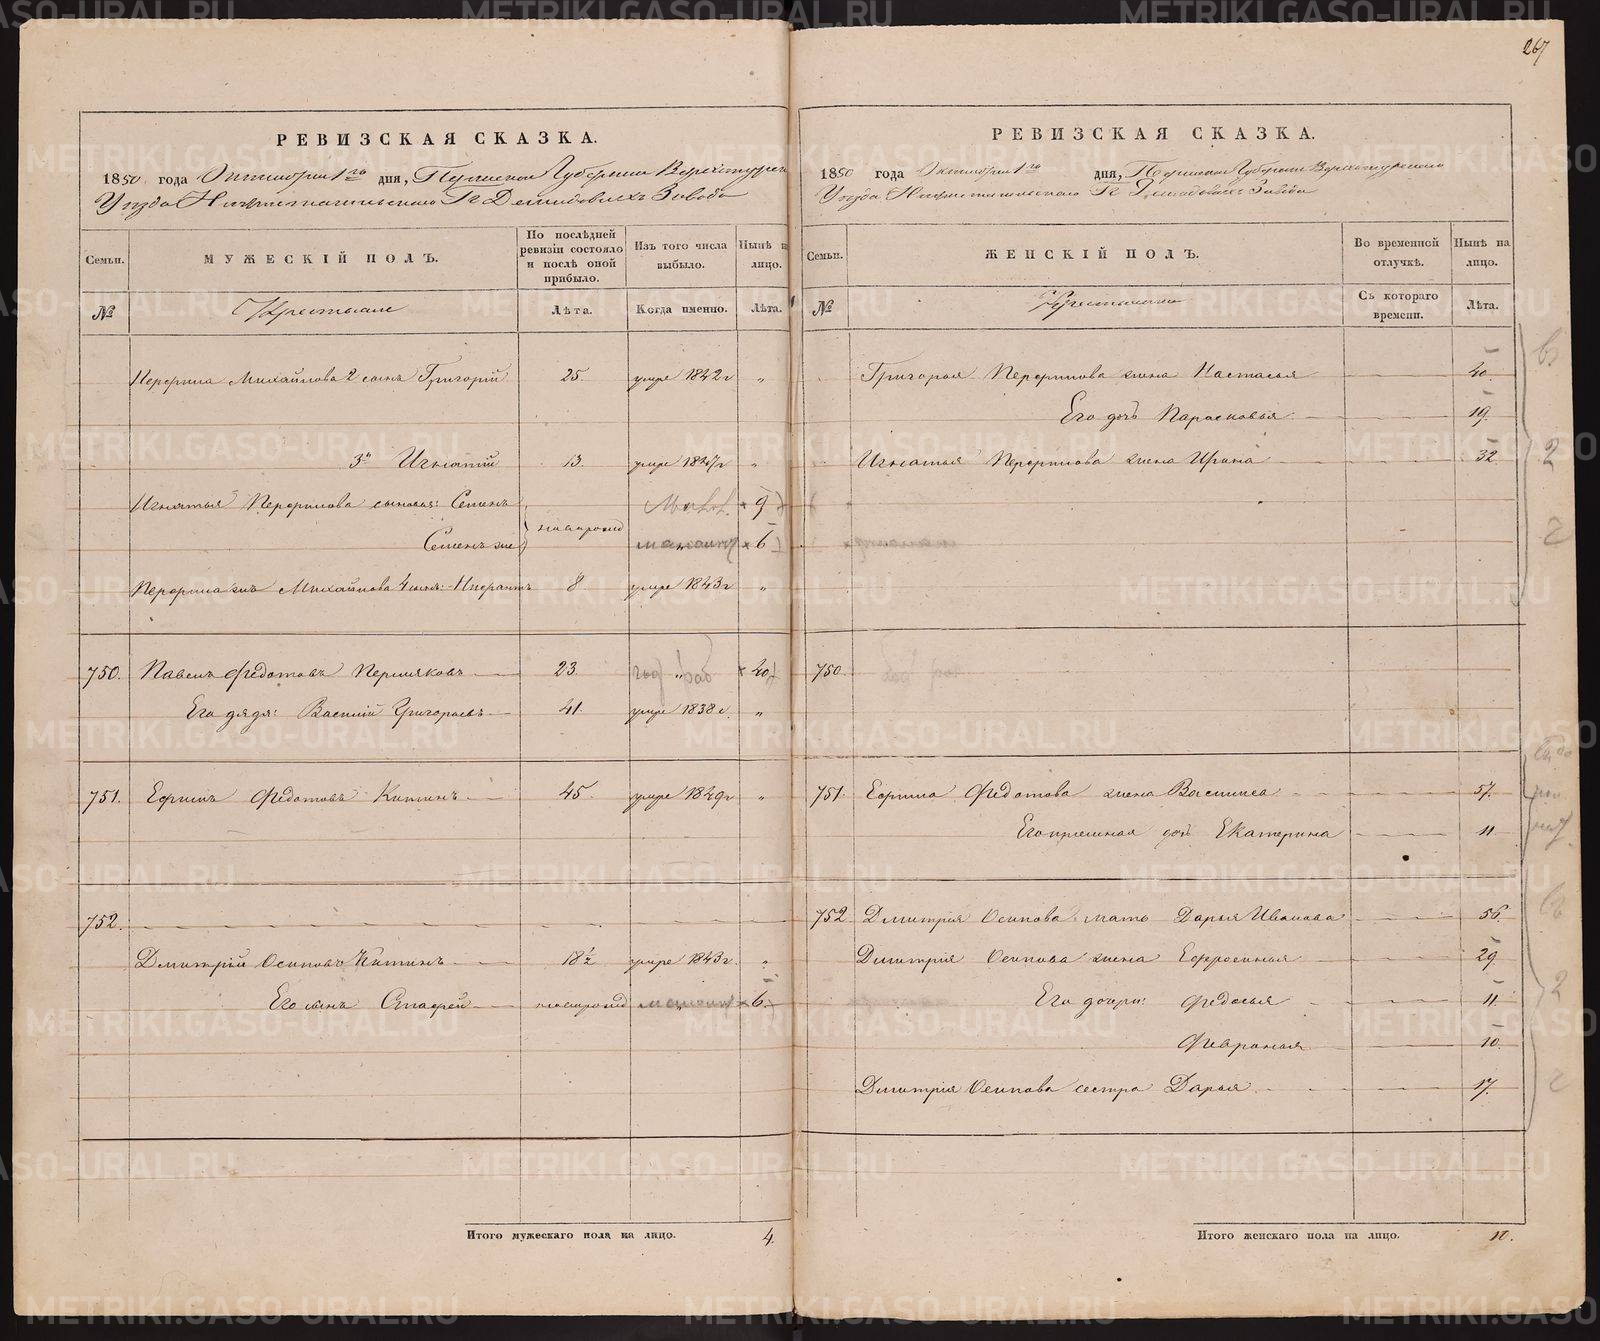 267
РЕВИЗСКАЯ СКАЗКА.
1850 года Октября 1го дня, Пермской Губернии Верхотурск
Уѣзда Нижнетагильскаго Гг Демидовыхъ Завода
Семьи.
МУЖЕСКІЙ ПОЛЪ.
По послѣдней ревизіи состояло и послѣ оной прибыло.
Изъ того числа выбыло.
Нынѣ на лицо.
№
Крестьяне
Лѣта.
Когда именно.
Лѣта.
Перфила Михайлова 2 сынъ Григорій 25. умре 1842 г „
3й Игнатій 13. умре 1847 г „
Игнатья Перфилова сыновья: Семенъ 9
Семенъ же новорожд 6
Перфила жъ Михайлова 4 сынъ: 8 умре 1843 г „
750. Павелъ Федотовъ Пермяковъ 23. „ 40
Его дядя: Василій Григорьевъ 41. умре 1838 г. „
751. Ефимъ Федотовъ Китинъ 45. умре 1849 г „
752.
Дмитрій Осиповъ Китинъ 18½ умре 1843 г. „
Его сынъ новорожд „ 6
Итого мужескаго пола на лицо. 4.
РЕВИЗСКАЯ СКАЗКА.
1850 года Октября 1го дня, Пермской Губернии Верхотурскаго
Уѣзда Нижнетагильскаго Гг Демидовыхъ Завода
Семьи.
ЖЕНСКІЙ ПОЛЪ.
Во временной отлучкѣ.
Нынѣ на лицо.
№
Крестьянки
Съ котораго времени.
Лѣта.
Григорья Перфилова жена Настасья 40.
Его дочь Парасковья 19.
Игнатья Перфилова жена Ирина 32
750.
751. Ефима Федотова жена Василиса 57.
Его приемная дочь Екатерина 11
752 Дмитрія Осипова мать Дарья Иванова 56.
Дмитрія Осипова жена Ефросинья 29
Его дочери: Федосья 11.
Февронья 10.
Дмитрія Осипова сестра Дарья 17.
Итого женскаго пола на лицо. 10.
METRIKI.GASO-URAL.RU